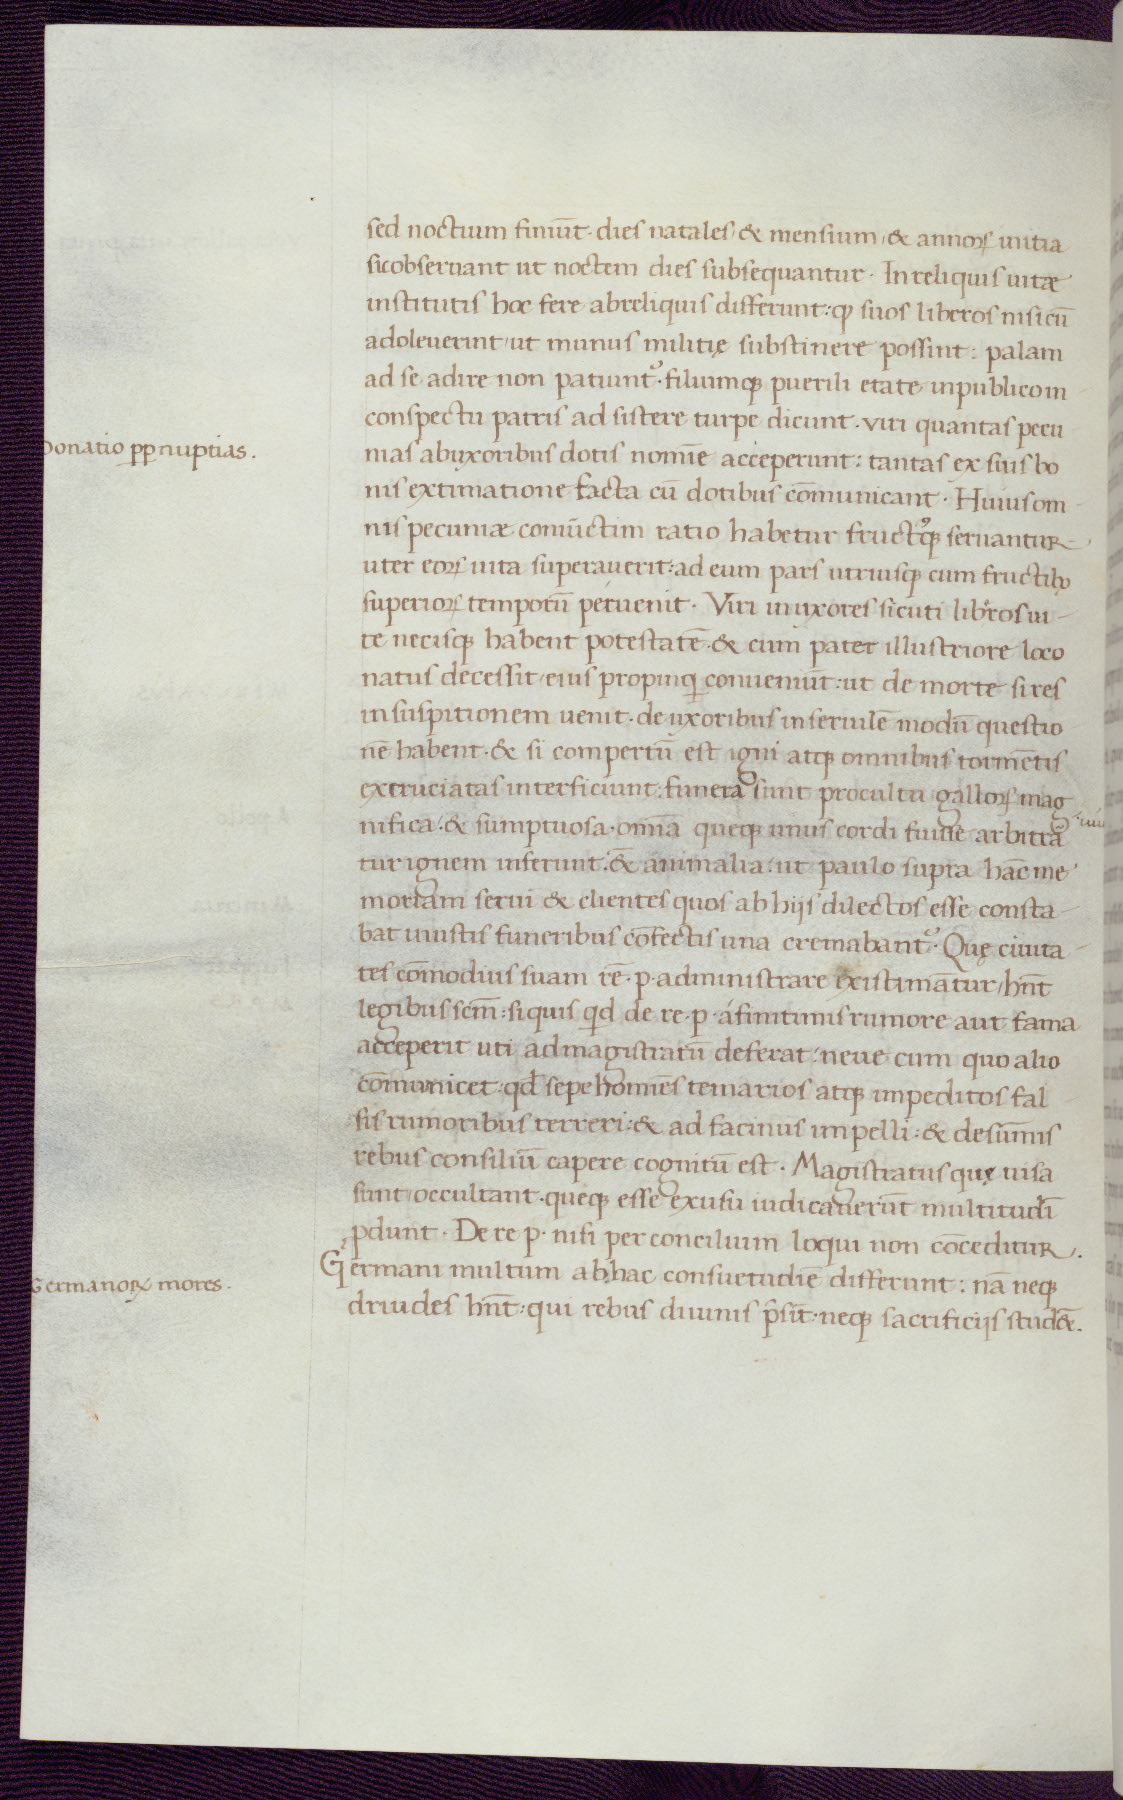 sed noctium finiūt · dies natales & mensium, & annoꝝ initia
sicobseruant ut noctem dies subsequantur · In reliquis uitæ
institutis hoc fere abreliquis differunt: ꝙ suos liberos nisi cū
adoleuerint, ut munus militię substinere possint: palam
ad se adire non patiunt᷑ · filiumqꝫ puerili etate inpublico in
conspectu patris ad sistere turpe dicunt · viri quantas pecu
Donatio ꝓpnuptias.
nias abuxoribus dotis nomīe acceperunt: tantas ex suis bo
nis extimatione facta cū dotibus cōmunicant · Huius om-
nis pecuniæ coniūctim ratio habetur fructꝰqꝫ seruantur
uter eoꝝ uita superauerit: ad eum pars utriusqꝫ cum fructibꝫ
superioꝝ temporū peruenit · Viri inuxores sicuti libros ui-
te necisqꝫ habent potestatē · & cum pater illustriore loco
natus decessit, eius propinqi conueniūt: ut de morte si res
in suspitionem uenit · de uxoribus in seruilē modū questio
nē habent · & si compertū est igni atqꝫ omnibus tormētis
excruciatas interficiunt: funera sunt procultu galloꝝ mag
nifica, & sumptuosa · omīa queqꝫ uiuis cordi fuisse arbitrā
tur ignem inferunt: & animalia: ut paulo supra hāc me
moriam serui & clientes quos ab hijs dilectos esse consta-
bat iniustis funeribus cōfectis una cremabant᷑ · Quę ciuita-
tes cōmodius suam rē · p · administrare existimātur, hn̄t
legibus scm̄: siquis qd de re · p · áfinitimis rumore aut fama
acceperit uti admagistratū deferat: neue cum quo alio
cōmunicet: qđ sepe homīes temarios atqꝫ impeditos fal
sis rumoribus terreri: & ad facinus impelli: & desūmis
rebus consiliū capere cognitū est · Magistratus quę uisa
sunt, occultant · queqꝫ esse exusu iudicauerūt multitudī
ꝓdunt · De re p · nisi per concilium loqui non cōceditur.
Germani multum ab hac consuetudīe differunt: nā neqꝫ
Germanoꝝ mores.
druides hn̄t: qui rebus diuinis p̄sīt · neqꝫ sacrificijs studēt.